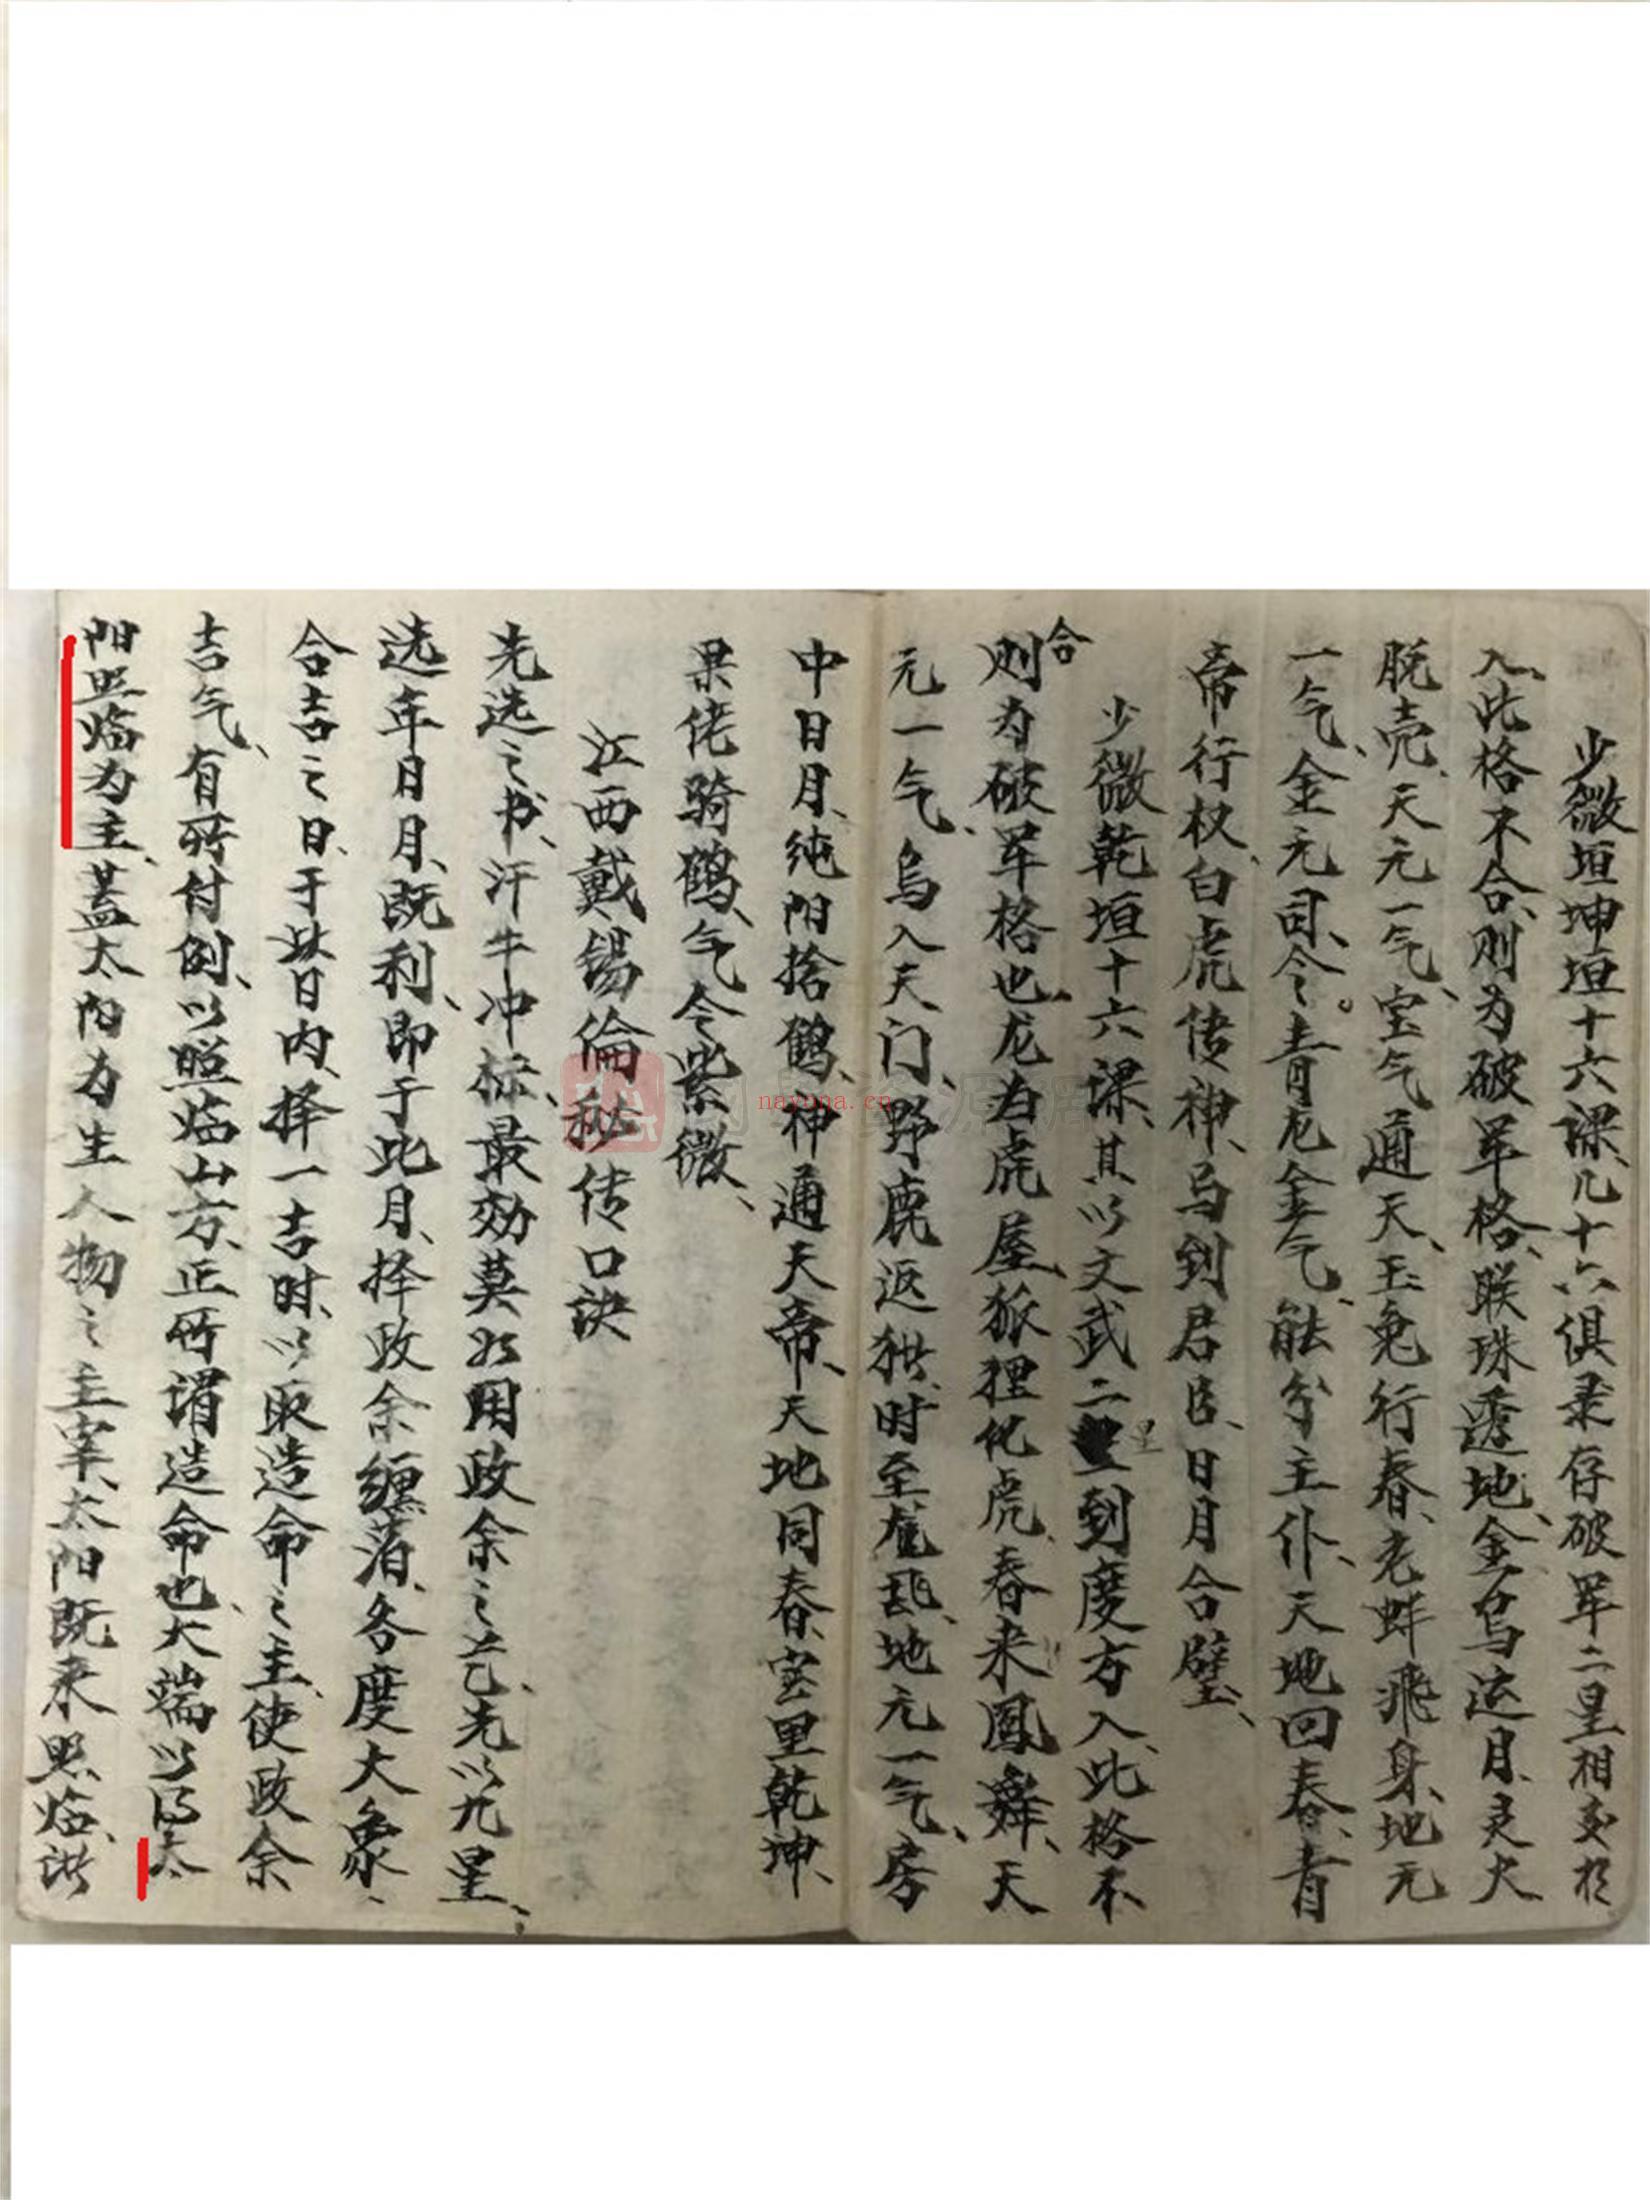 少微垣坤垣十六课、凡十六俱录存破军二星相交於
入、此格不合、则为破军格、联珠透地、金乌运月、灵犬
脱壳、天元一气、宝气通天、玉兔行春、老蚌飛身、地元
一气、金元司令、青龙金气、能分主仆、天地回春、青
帝行权、白虎传神、马到君臣、日月合璧、
少微乾垣十六课、其以文武二星到度方入、此格不
合则为破军格也、龙为虎屋、狐狸化虎、春来凤舞、天
元一气、乌入天门、野鹿返、时至、地元一气、房
中日月、纯阳捨鹤、神通天帝、天地同春、室里乾坤、
果佬骑鹤、气令紫微、
江西戴锡倫秘传口诀
先选之书、汗牛冲标、最効莫如用政余之艺、先以九星、
选年月月、既利、即于此月、择政余缠泊、各度大象、
合吉之日、于此日内、择一吉时、以取造命之主、使政余
吉气、有所付例、以照临山方、正所谓造命也、大端以得太
阳照临为主、盖太阳为生人物之主宰、太阳既来照临、诸
nayona.cn